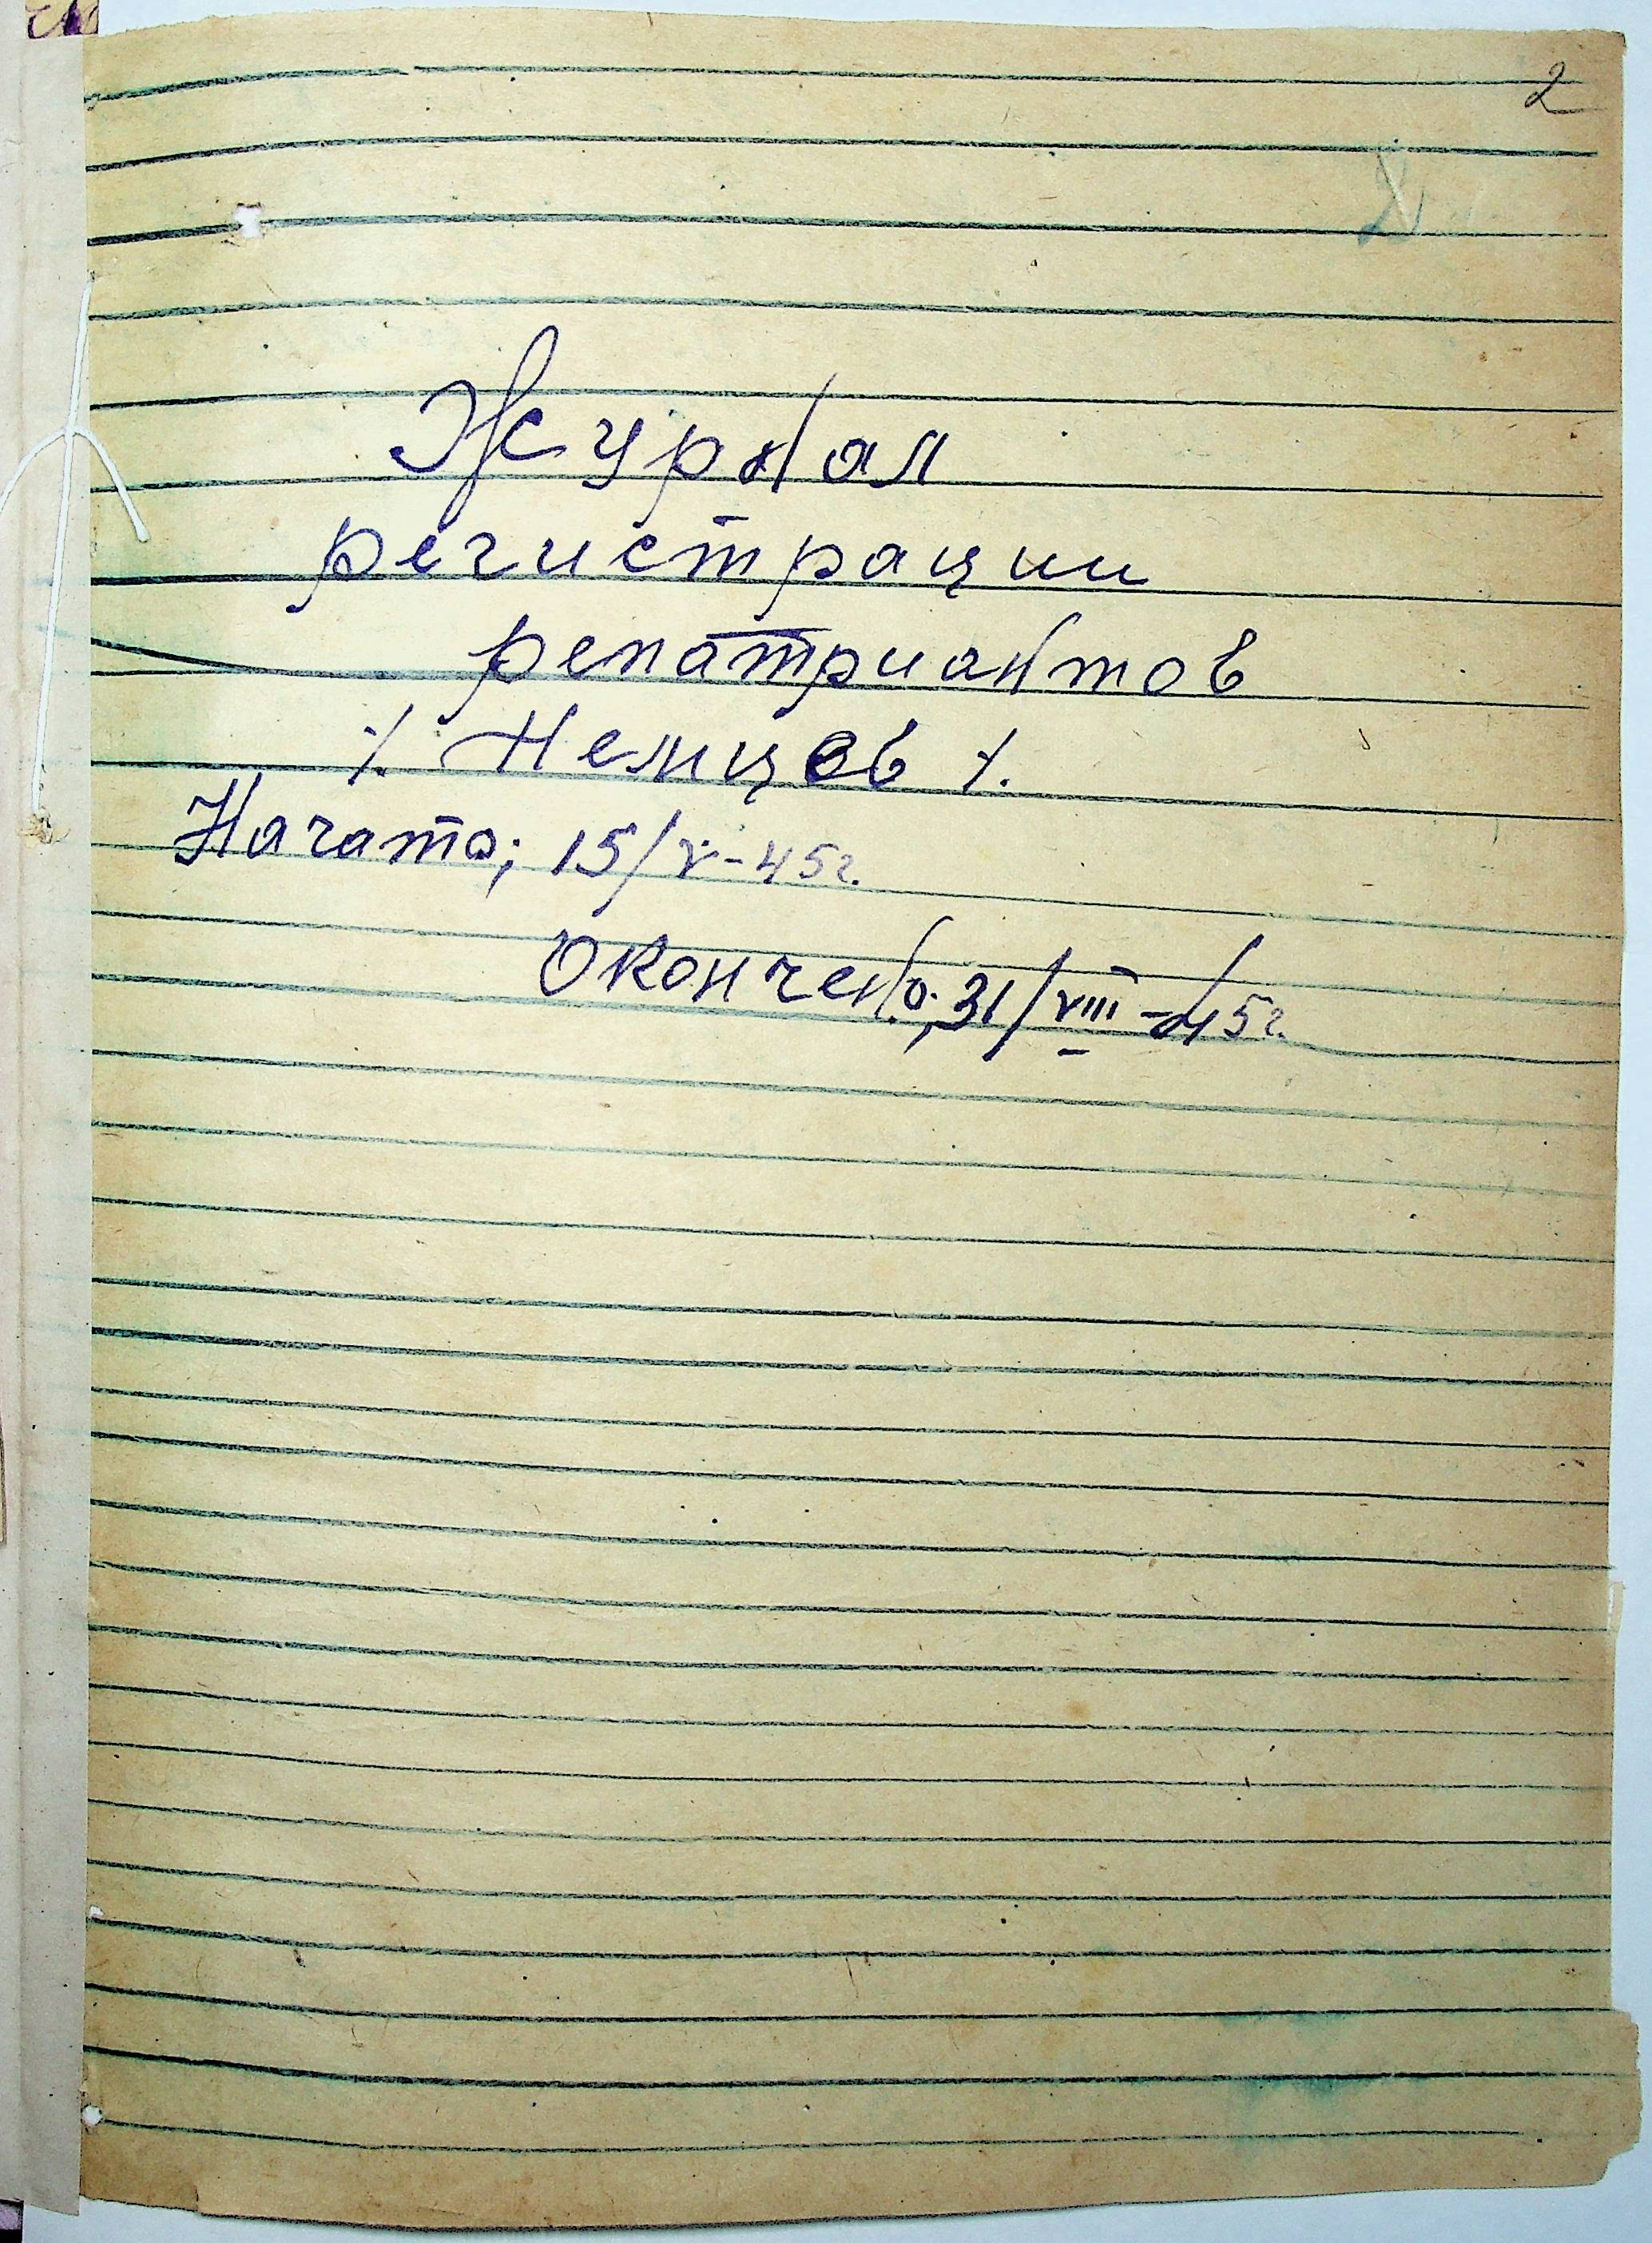 2
Журнал
регистрации
репатриантов
·/. Немцев ·/.
Начато; 15/V-45г.
Окончено; 31/VIII-45г.